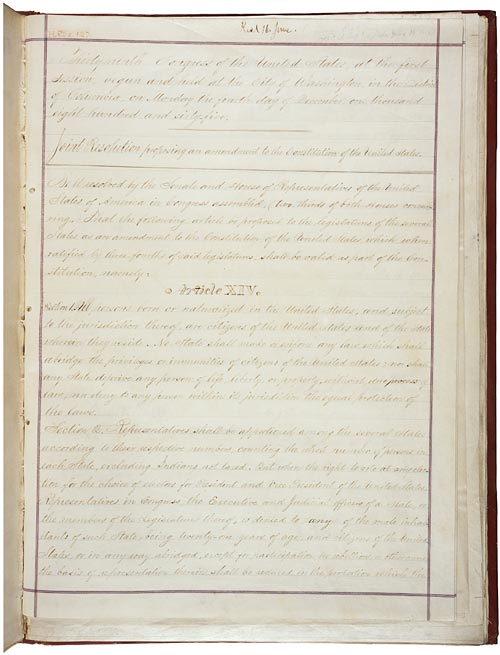 Rec'd 16 June.
Thirty-ninth Congress of the United States, at the first
Session, begun and held at the City of Washington, in the District
of Columbia, on Monday the fourth day of December one thousand
eight hundred and sixty-five.
Joint Resolution proposing an amendment to the Constitution of the United States.
Be it resolved by the Senate and House of Representatives of the United
States of America in Congress assembled, (two-thirds of both Houses concur-
ring,) That the following article be proposed to the legislatures of the several
States as an amendment to the Constitution of the United States, which, when
ratified by three-fourths of said legislatures, shall be valid as part of the Con-
stitution, namely:
Article XIV.
Section 1. All persons born or naturalized in the United States, and subject
to the jurisdiction thereof, are citizens of the United States and of the State
wherein they reside. No State shall make or enforce any law which shall
abridge the privileges or immunities of citizens of the United States; nor shall
any State deprive any person of life, liberty, or property, without due process of
law; nor deny to any person within its jurisdiction the equal protection of
the laws.
Section 2. Representatives shall be apportioned among the several States
according to their respective numbers, counting the whole number of persons in
each State, excluding Indians not taxed. But when the right to vote at any elec-
tion for the choice of electors for President and Vice President of the United States,
Representatives in Congress, the Executive and Judicial officers of a State, or
the members of the Legislature thereof, is denied to any of the male inhabi-
tants of such State, being twenty-one years of age, and citizens of the United
States, or in any way abridged, except for participation in rebellion or other crime,
the basis of representation therein shall be reduced in the proportion which the